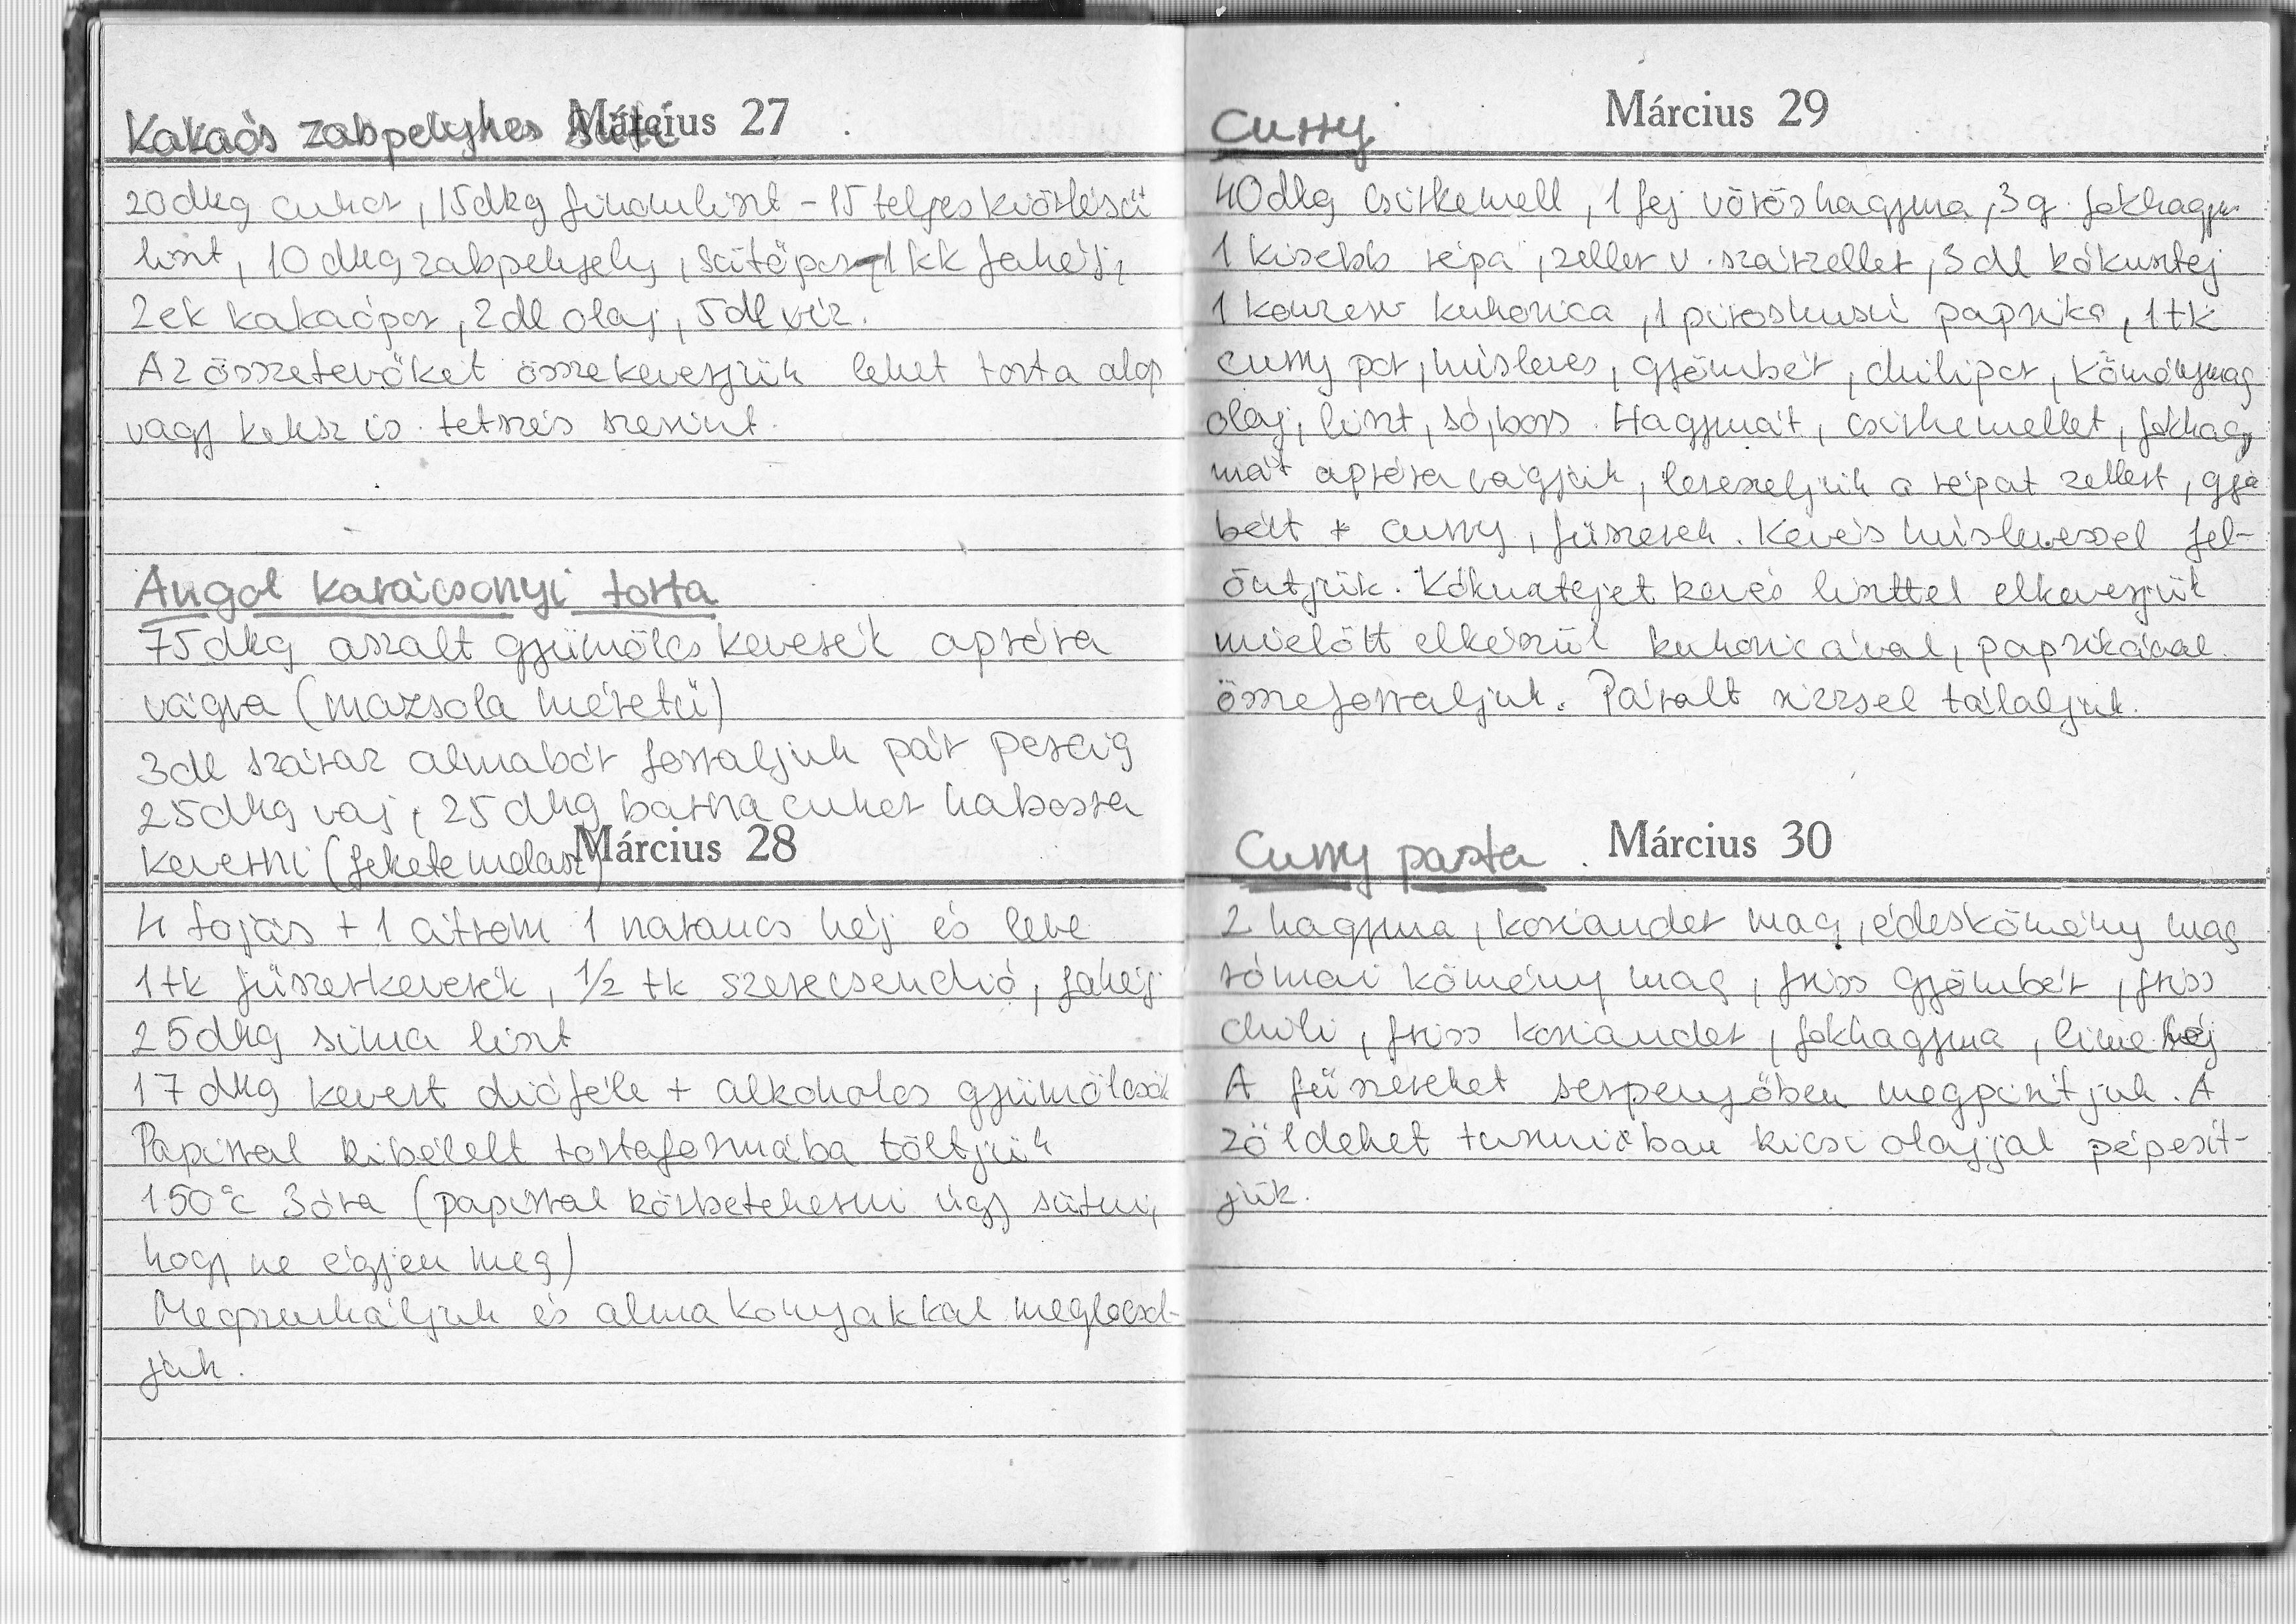 Március 27
Kakaós zabpelyhes süti
20dkg cukor, 15dkg finomliszt - 15 teljes kiőrlésű
liszt, 10 dkg zabpehely, sütőpor, 1 kk fahéj,
2ek kakaópor, 2dl olaj, 5dl víz.
Az összetevőket összekeverjük lehet torta alap
vagy keksz is tetszés szerint.
Angol karácsonyi torta
75dkg aszalt gyümölcs keverék apróra
vágva (mazsola méretű)
3dl száraz almabor forraljuk pár percig
25dkg vaj, 25dkg barna cukor habosra
keverni (fekete melasz)
Március 28
4 tojás + 1 citrom 1 narancs héj és leve
1tk fűszerkeverék, 1/2 tk szerecsendió, fahéj
25dkg sima liszt
17dkg kevert dióféle + alkoholos gyümölcsök
Papírral kibélelt tortaformába töltjük
150°C 3óra (papírral körbetekerni úgy sütni,
hogy ne égjen meg)
Megszurkáljuk és alma konyakkal meglocsol-
juk.
Március 29
Curry
40dkg csirkemell, 1 fej vöröshagyma, 3 g. fokhagym
1 kisebb répa, zeller v. szárzeller, 3 dl kókusztej
1 konzerv kukorica, 1 piroshusú paprika, 1tk
curry por, húsleves, gyömbér, chilipor, köménymag
olaj, liszt, só, bors. Hagymát, csirkemellet, fokhagy
mát apróra vágjuk, lereszeljük a répát zellert, gyö
bért + curry, fűszerek. Kevés húslevessel fel-
öntjük. Kókusztejet kevés liszttel elkeverjük
mielőtt elkészül kukoricával, paprikával
összeforraljuk. Párolt rizzsel tálaljuk.
Március 30
Curry paszta
2 hagyma, koriander mag, édeskömény mag
római kömény mag, friss gyömbér, friss
chili, friss koriander, fokhagyma, lime héj
A fűszereket serpenyőben megpirítjuk. A
zöldeket turmixban kicsi olajjal pépesít-
jük.